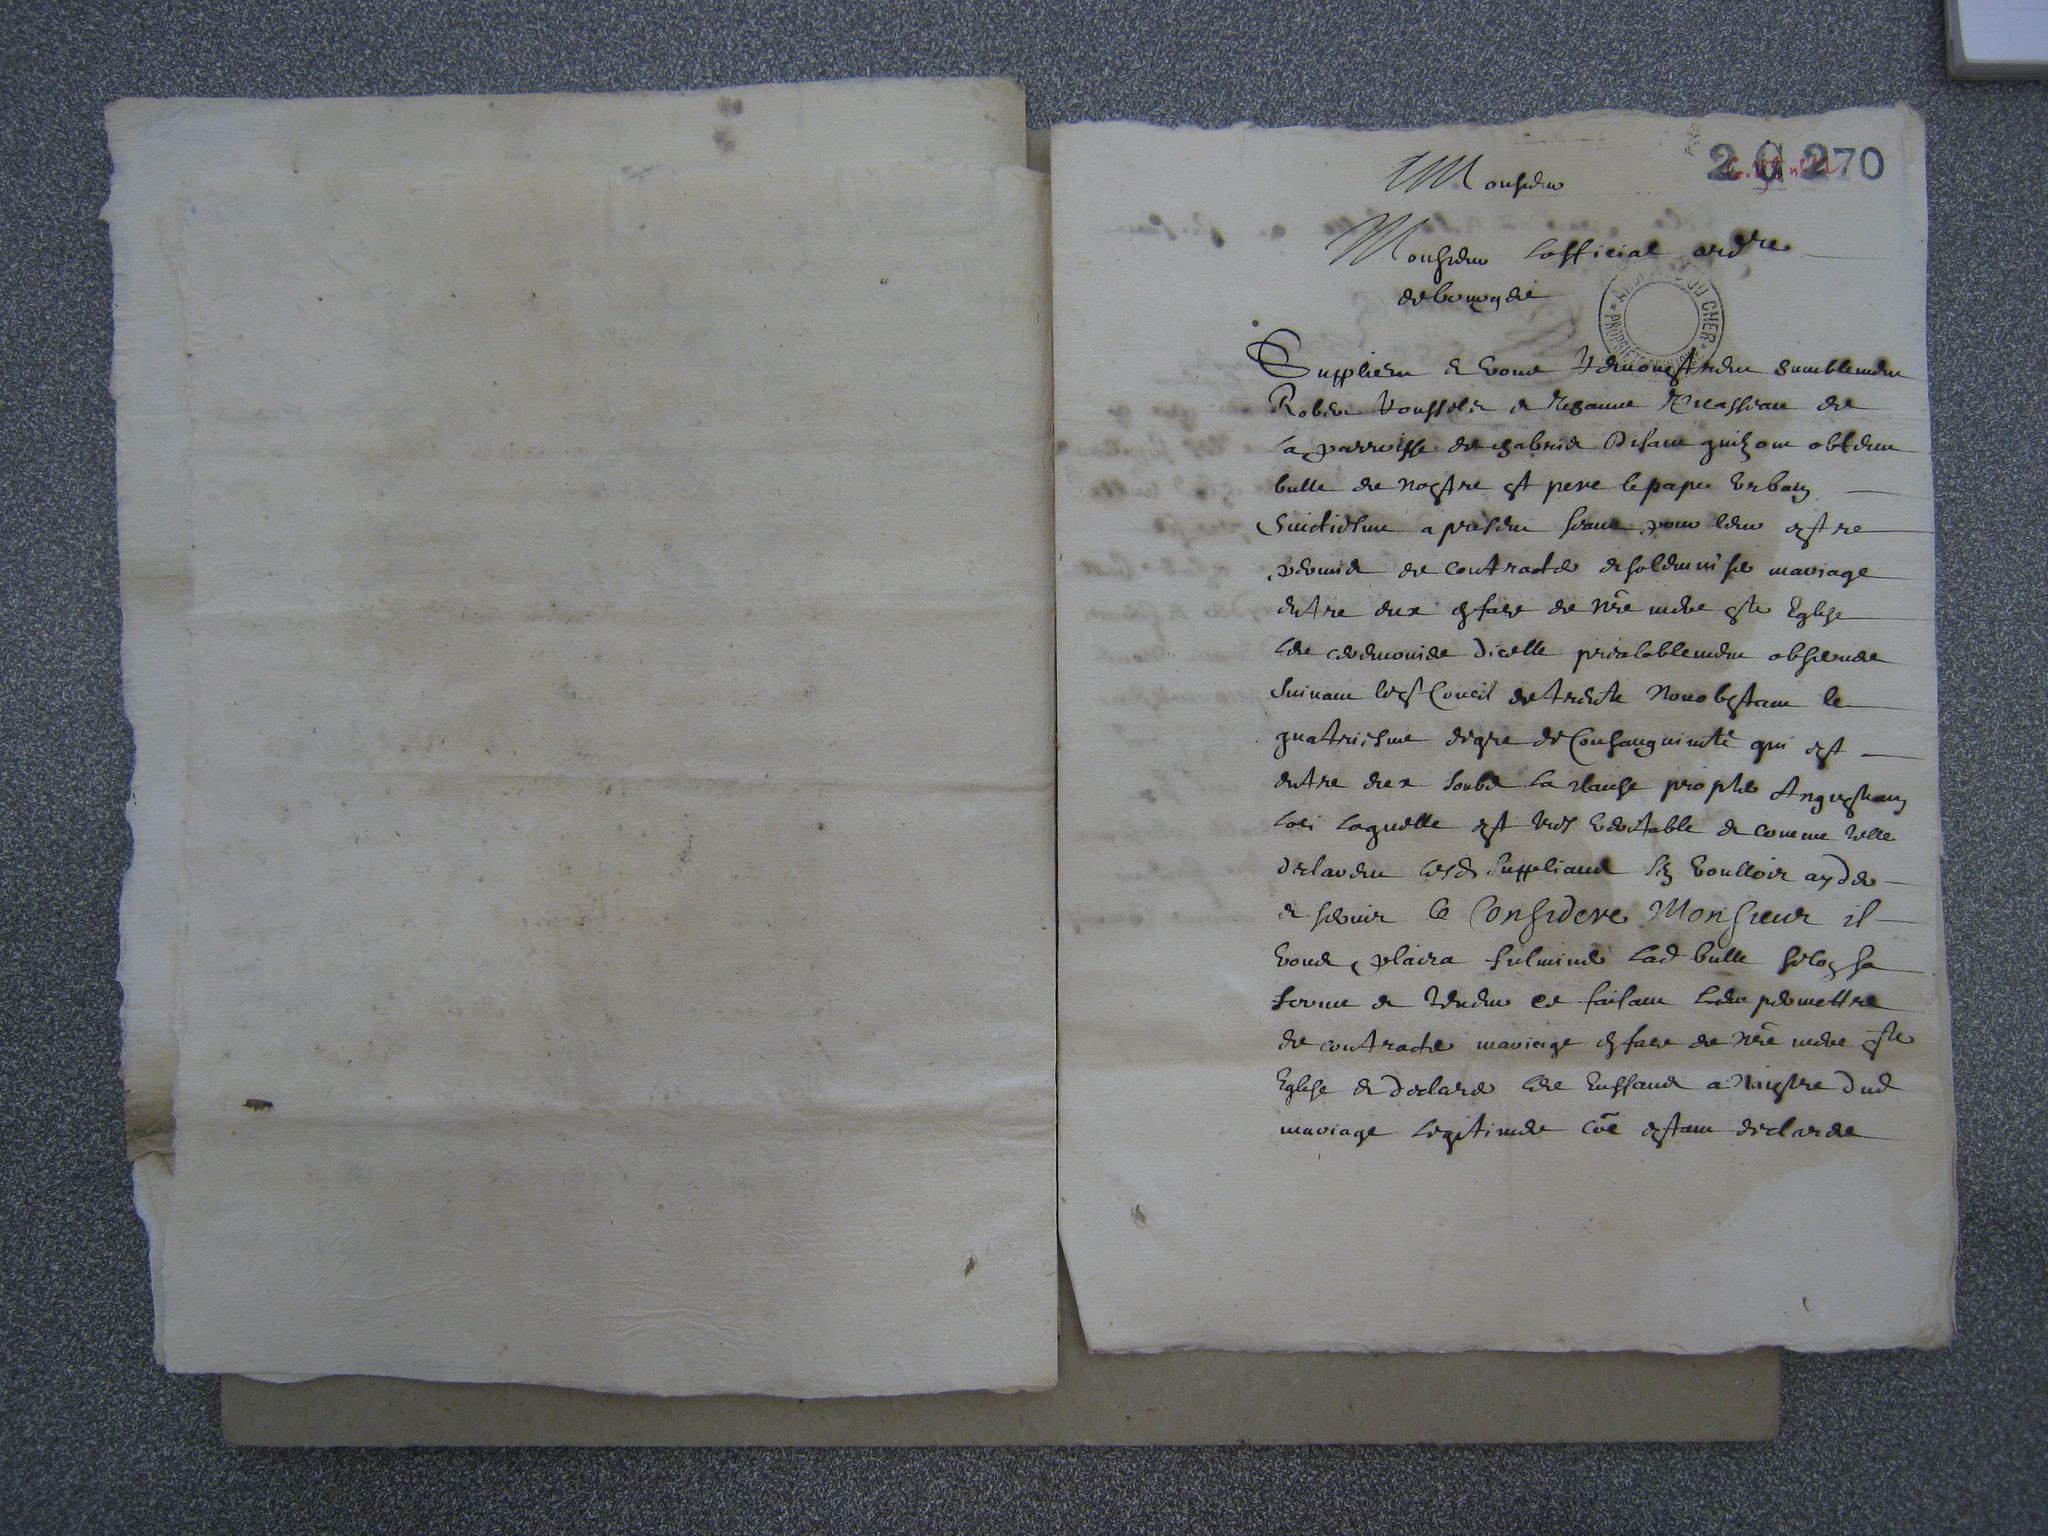 2 G 270
Monsieur
Monsieur Lofficial ordre
de bourges
ARCHIVES DU CHER
PROPRIÉTÉ PUBLIQUE
Supplient et vous remonstrent humblement
Robert Roussele et Jehanne de
La parroisse de chabris disant quilz ont obtenu
bulle de nostre st pere le pape Urbain
huictiesme a present seant pour leur estre
permis de contracter et solemniser mariage
entre eux en face de nre mere ste Eglise
Les ceremonies dicelle prealablement observees
suivant le st Concil de trente Nonobstant le
quatriesme degre de Consanguinite qui est
entre eux soubz La clause propter Angustiam
Loci Laquelle est tres veritable et comme telle
declarent lesd suppliants sen voulloir ayder
et servir Ce Consideré Monsieur il
vous plaira fulminer Lad bulle selon sa
forme et teneur ce faisant Leur permettre
de contracter mariage en face de nre mere ste
Eglise et declarer Les Enffans a Naistre dud
mariage Legitimes coe estans declarés